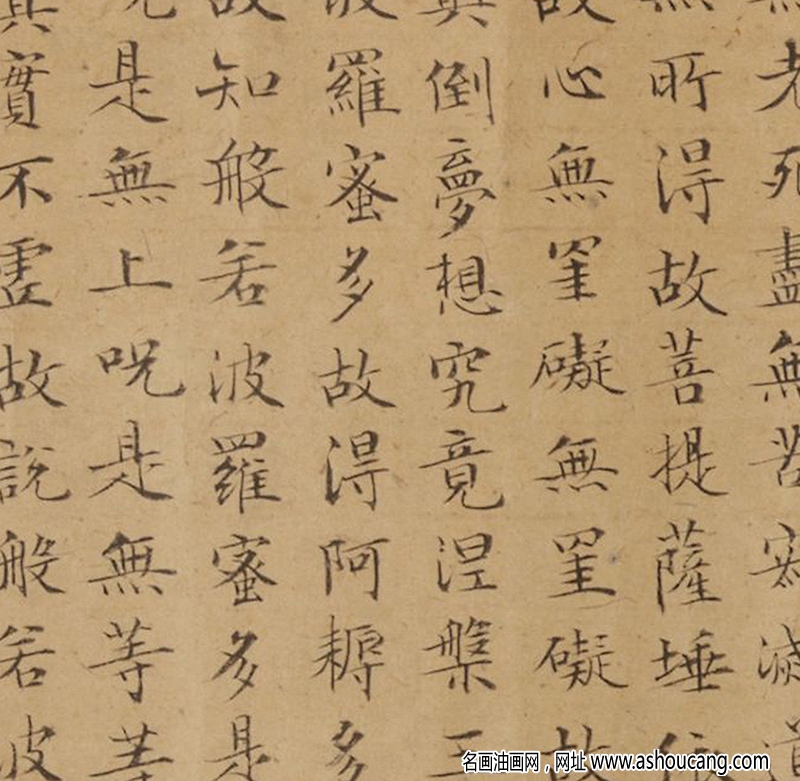 無老死盡無苦寂滅道
無所得故菩提薩埵依
故心無罣礙無罣礙故
倒夢想究竟涅槃三
波羅蜜多故得阿耨多
故知般若波羅蜜多是
呪是無上呪是無等等
真實不虛故說般若波
名画油画网，网址 www.ashoucang.com